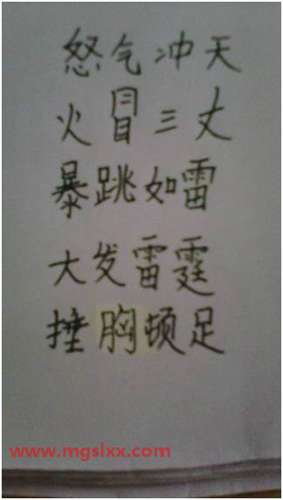 怒气冲天
火冒三丈
暴跳如雷
大发雷霆
捶胸顿足
www.mgslxx.com